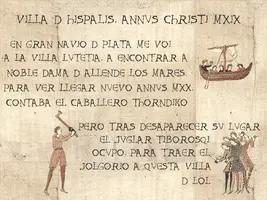 VILLA D HISPALIS. ANNVS CHRISTI MXIX
EN GRAN NAVIO D PLATA ME VOI
A LA VILLA LVTETIA. A ENCONTRAR A
NOBLE DAMA D ALLENDE LOS MARES.
PARA VER LLEGAR NVEVO ANNVS MXX.
CONTABA EL CABALLERO THORNDIKO
PERO TRAS DESAPARECER SV LVGAR
EL JVGLAR TIBOROSQI
OCVPO. PARA TRAER EL
JOLGORIO A QVESTA VILLA
D LOL